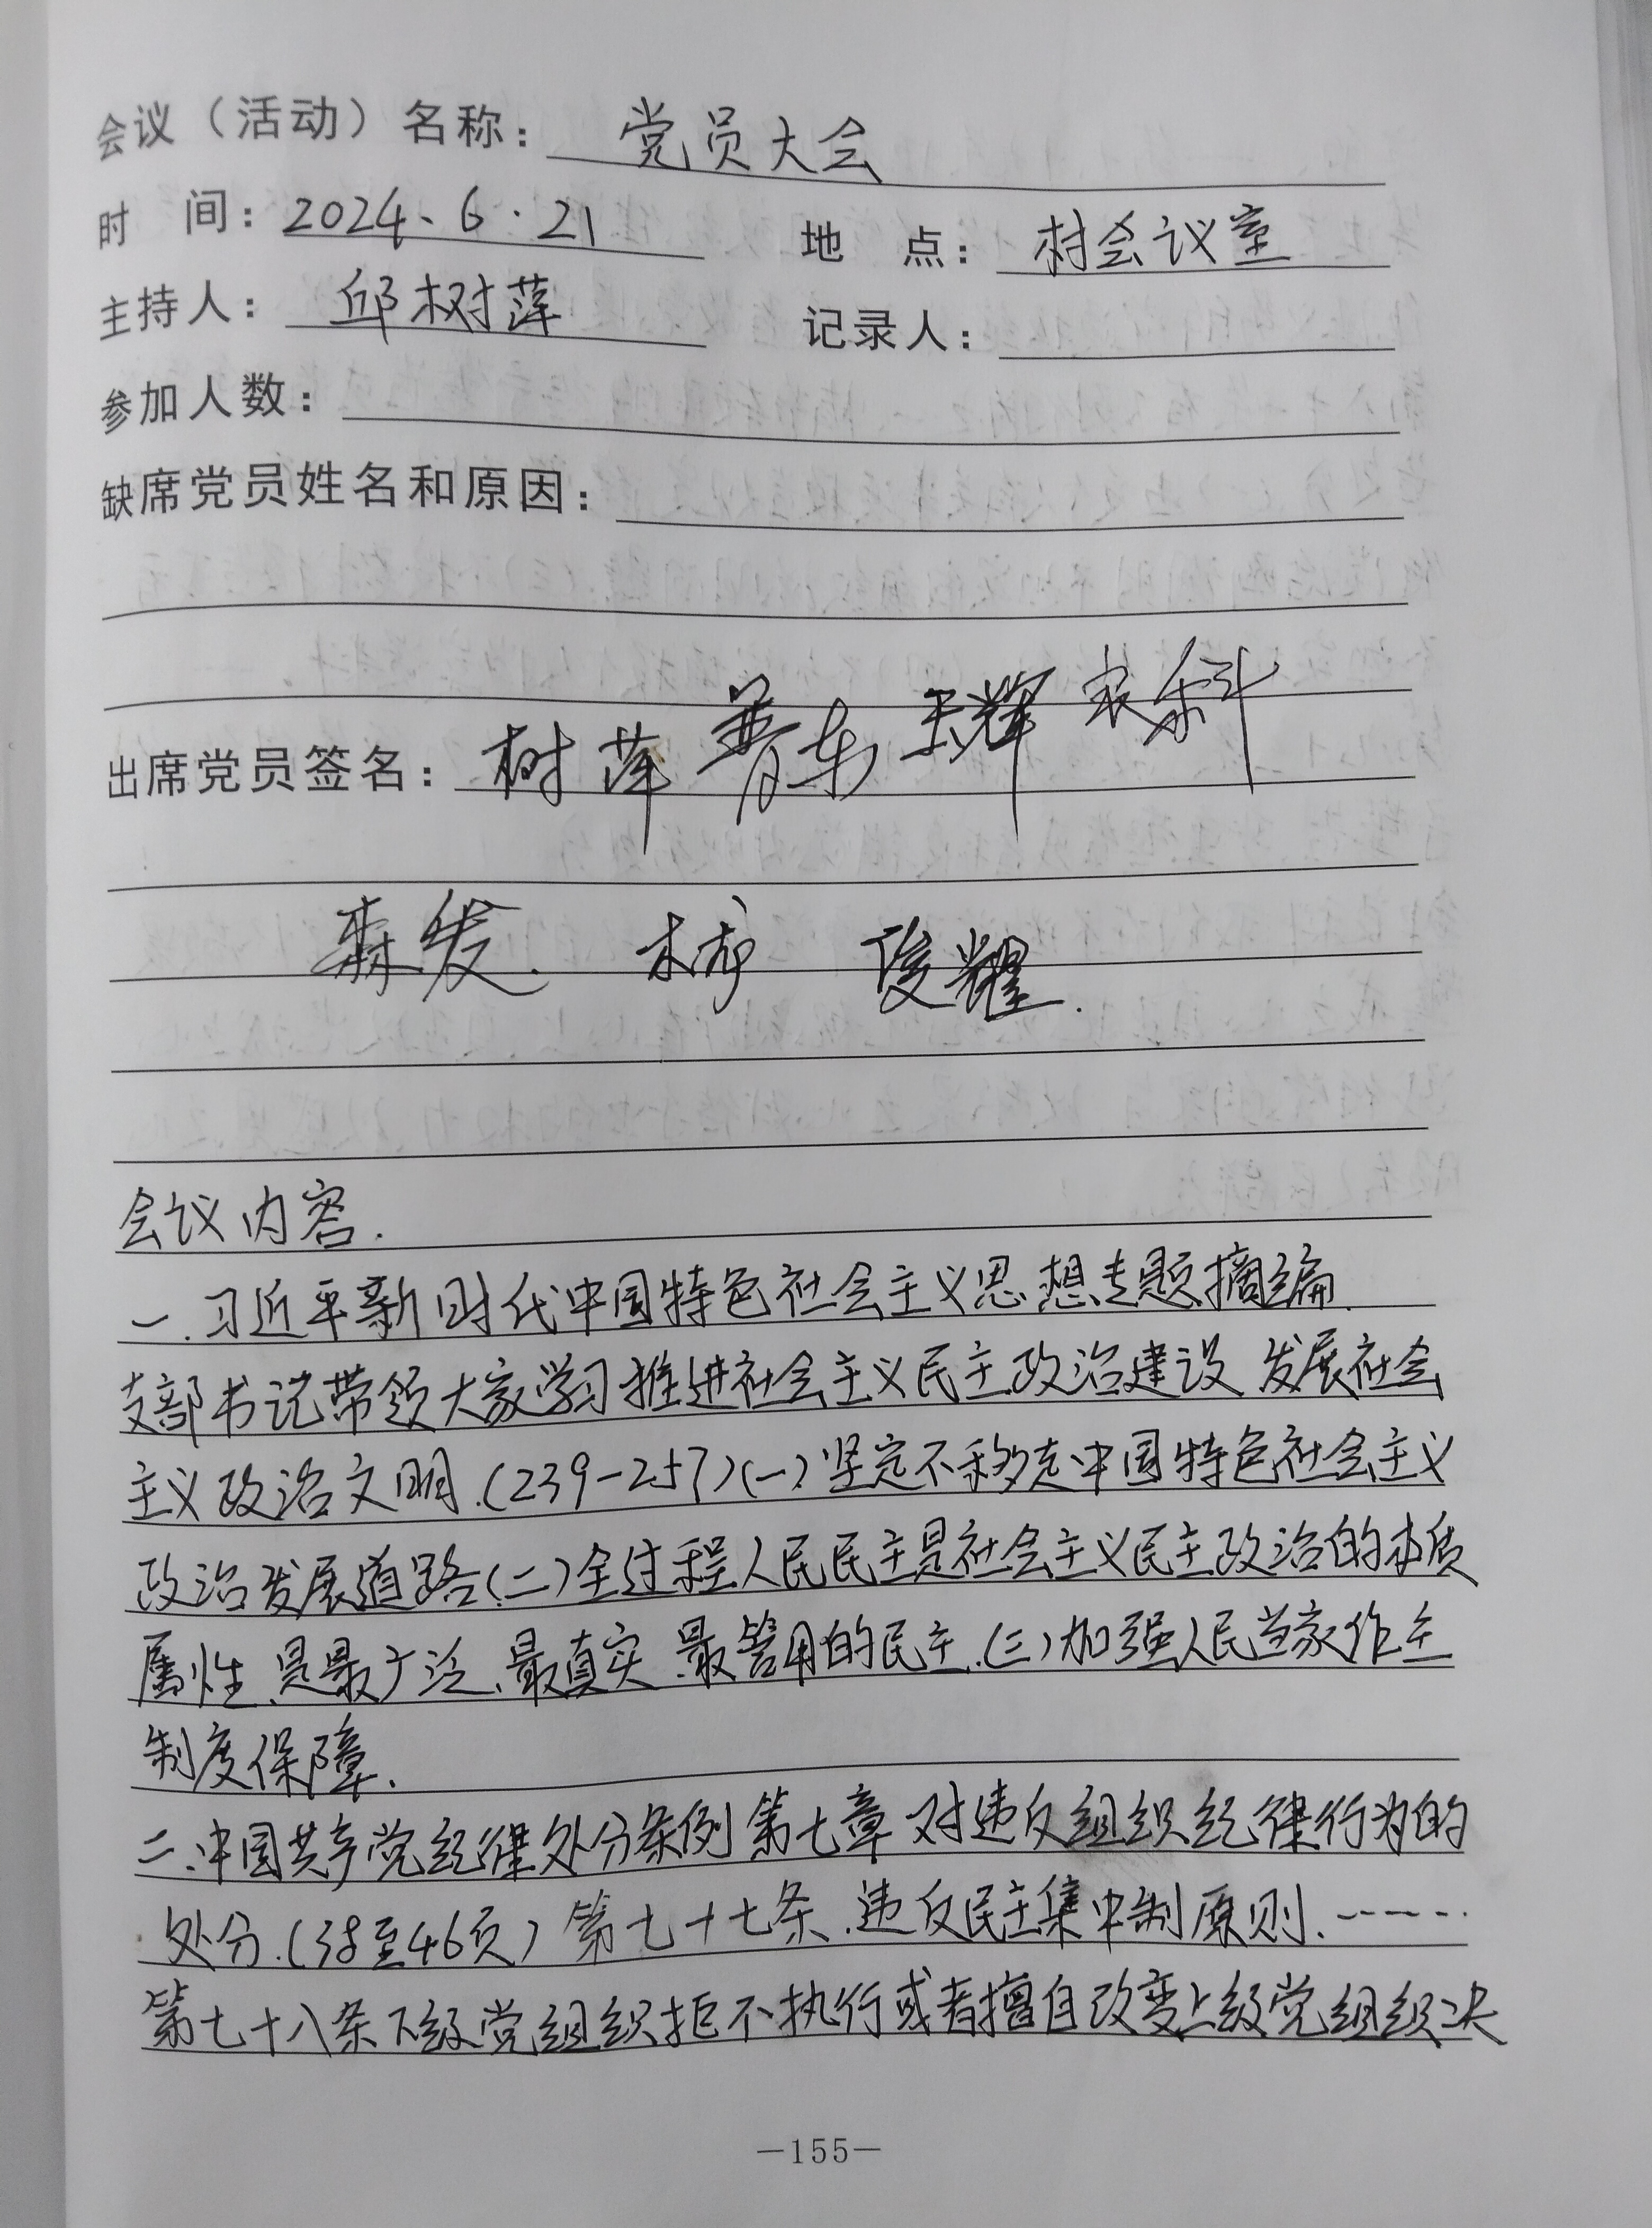 会议（活动）名称： 党员大会
时 间：2024、6.21 地 点：村会议室
主持人：邱树萍 记录人：
参加人数：
缺席党员姓名和原因：
出席党员签名：树萍
森发. 俊耀.
会议内容.
一.习近平新时代中国特色社会主义思想专题摘编.
支部书记带领大家学习推进社会主义民主政治建设 发展社会
主义政治文明.(239-257)(一)坚定不移走中国特色社会主义
政治发展道路(二)全过程人民民主是社会主义民主政治的本质
属性、是最广泛、最真实、最管用的民主.(三)加强人民当家作主
制度保障.
二、中国共产党纪律处分条例 第七章 对违反组织纪律行为的
处分.(38至46页) 第七十七条.违反民主集中制原则、……
第七十八条下级党组织拒不执行或者擅自改变上级党组织决
—155—